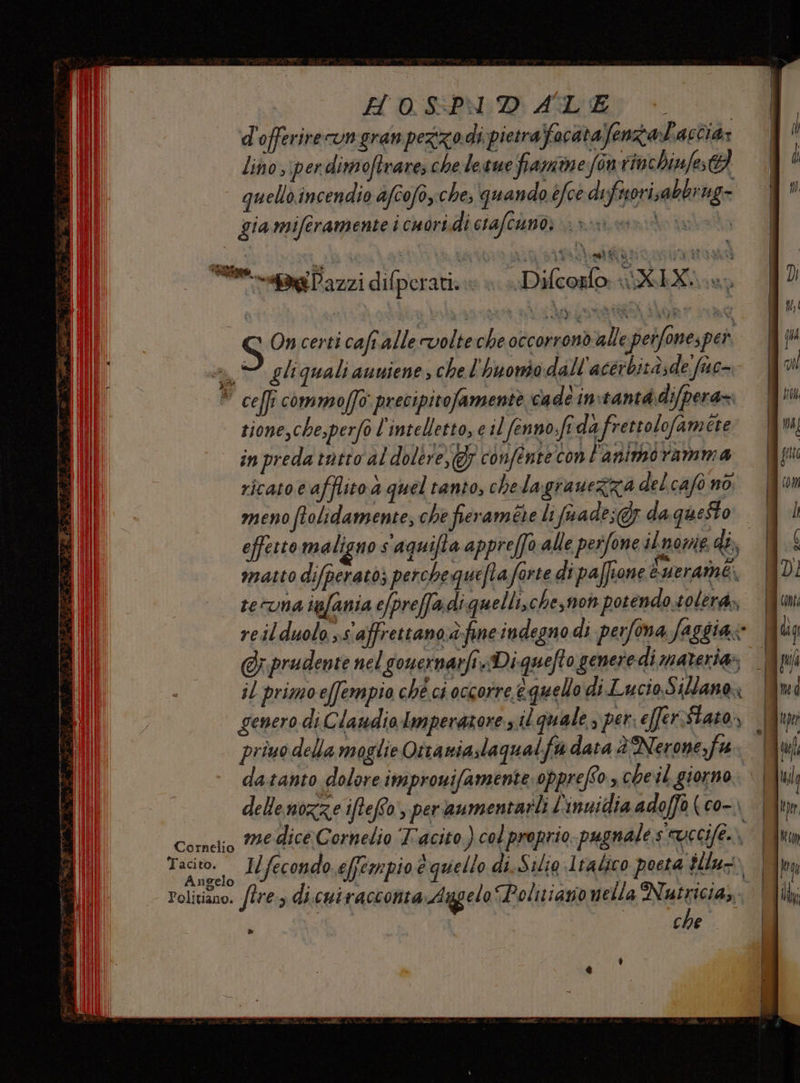 HOSPIDALE
d'offerire vn gran pezzo di pietra focata senza l'acciac
lino, per dimostrare, che le tue fiamme son rinchiuse, &
quello incendio ascoso, che, quando esce di fuori, abbrug-
gia miseramente i cuori di ciascuno.
De' Pazzi disperati. Discorso XIX.
Son certi casi alle volte che occorrono alle persone, per
gli quali auuiene, che l'huomo dall'acerbità, de suc-
cessi commosso precipitosamente cade in tantá dispera-
tione, che, perso l'intelletto, e il senno, si dà frettolosaméte
in preda tutto al dolere, & consente con l'animo ramma
ricato e afflito à quel tanto, che la grauezza del caso nõ
meno stolidamente, che fieraméte li suade; & da questo
effetto maligno s'aquista appresso alle persone il nome di,
matto disperato; perche questa sorte di passione è ueramé
te vna insania espressa di quelli, che, non potendo tolera,
re il duolo, s'affrettano à fine indegno di persona saggia,
& prudente nel gouernarsi. Di questo genere di materia,
il primo essempio che ci occorre, è quello di Lucio Sillano,
genero di Claudio Imperatore, il quale, per esser stato,
priuo della moglie Ottauia, laqual fu data à Nerone, fu
da tanto dolore improuisamente oppresso, che il giorno
delle nozze istesso, per aumentarli l'inuidia adosso (co-
Cornelio Tacito. me dice Cornelio Tacito) col proprio pugnale s'vccise.
Il secondo essempio è quello di Silio Italico poeta illu-
Angelo Politiano. stre, di cui racconta Angelo Politiano nella Nutricia,
che